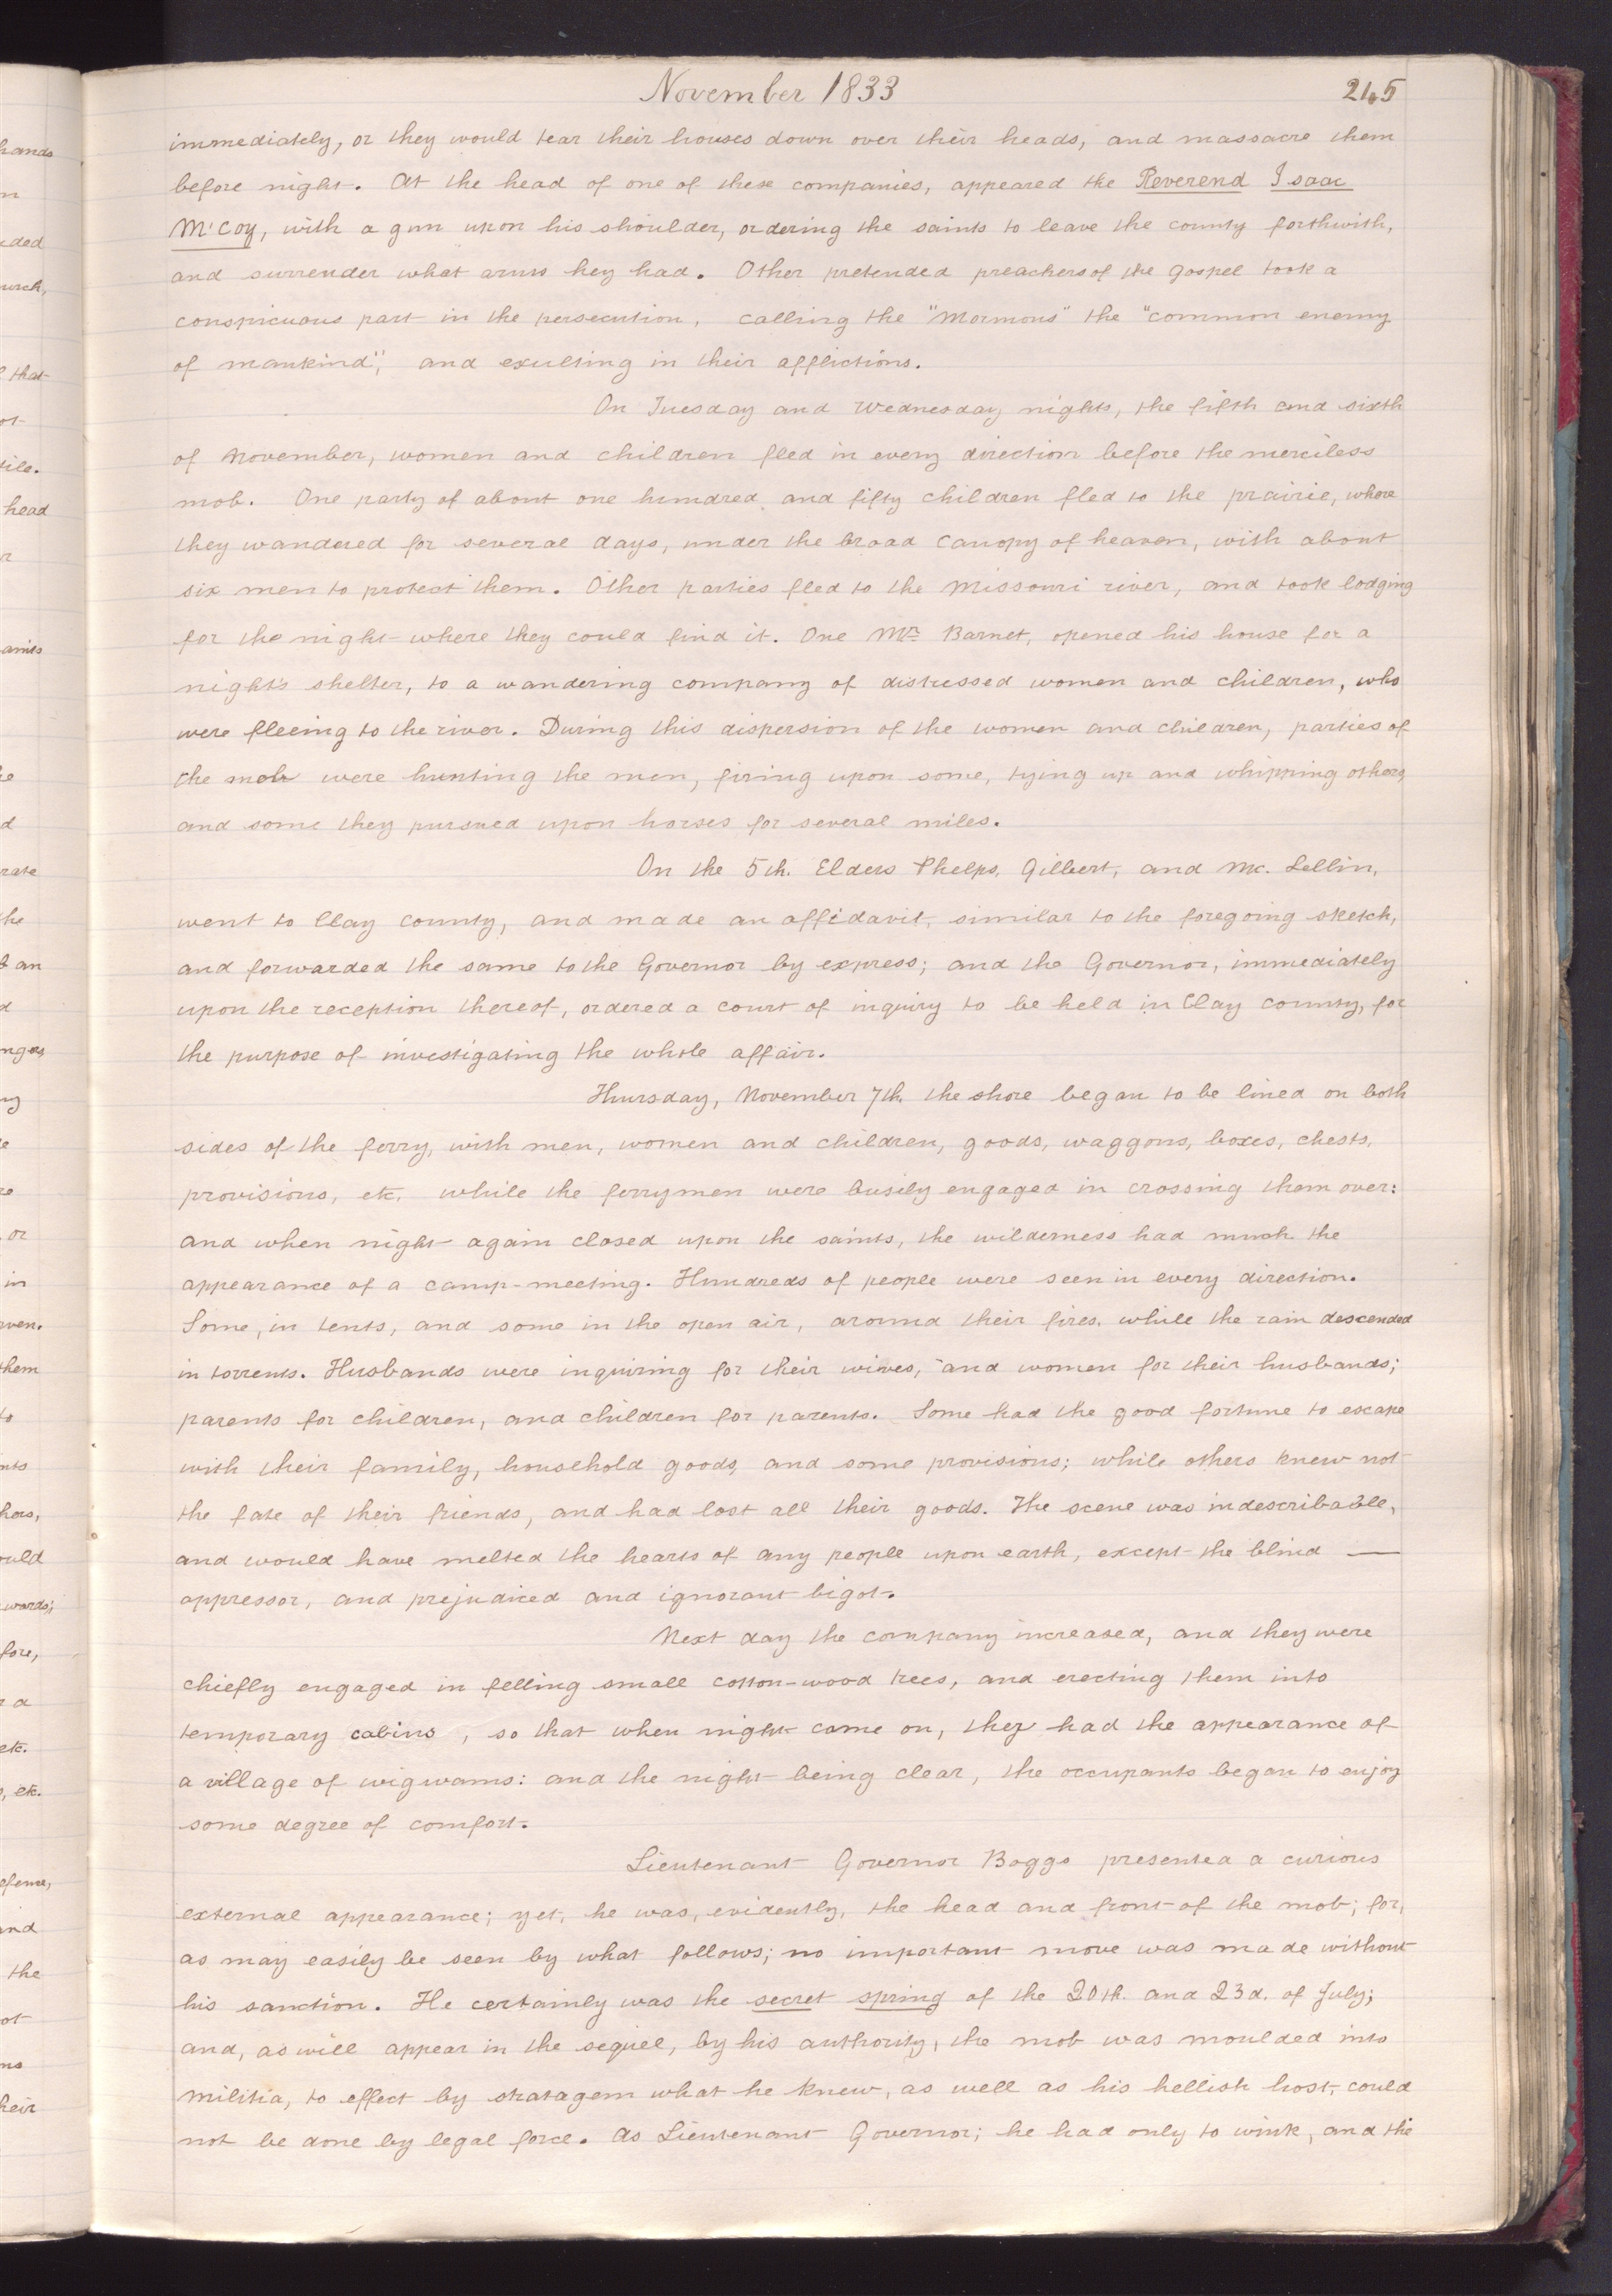 November 1833
245
immediately, or they would tear their houses down over their heads, and massacre them
before night. At the head of one of these companies, appeared the Reverend Isaac
Mc'Coy, with a gun upon his shoulder, ordering the saints to leave the county forthwith,
and surrender what arms hey had. Other pretended preachers of the gospel took a
conspicuous part in the persecution, calling the "Mormons" the "common enemy
of mankind", and exulting in their afflictions.
On Tuesday and Wednesday nights, the fifth and sixth
of November, women and children fled in every direction before the merciless
mob. One party of about one hundred and fifty children fled to the prairie, where
they wandered for several days, under the broad canopy of heaven, with about
six men to protect them. Other parties fled to the Missouri river, and took lodging
for the night where they could find it. One Mr. Barnet, opened his house for a
night's shelter, to a wandering company of distressed women and children, who
were fleeing to the river. During this dispersion of the women and children, parties of
the mob were hunting the men, firing upon some, tying up and whipping others,
and some they pursued upon horses for several miles.
On the 5th. Elders Phelps, Gilbert, and Mc. Lellin,
went to Clay county, and made an affidavit, similar to the foregoing sketch,
and forwarded the same to the Governor by express; and the Governor, immediately
upon the reception thereof, ordered a court of inquiry to be held in Clay county, for
the purpose of investigating the whole affair.
Thursday, November 7th. the shore began to be lined on both
sides of the ferry, with men, women and children, goods, waggons, boxes, chests,
provisions, etc. while the ferrymen were busily engaged in crossing them over:
and when night again closed upon the saints, the wilderness had much the
appearance of a camp-meeting. Hundreds of people were seen in every direction.
Some, in tents, and some in the open air, around their fires, while the rain descended
in torrents. Husbands were inquiring for their wives, and women for their husbands;
parents for children, and children for parents. Some had the good fortune to escape
with their family, household goods, and some provisions; while others knew not
the fate of their friends, and had lost all their goods. The scene was indescribable,
and would have melted the hearts of any people upon earth, except the blind —
oppressor, and prejudiced and ignorant bigot.
Next day the company increased, and they were
chiefly engaged in felling small cotton-wood trees, and erecting them into
temporary cabins, so that when night came on, they had the appearance of
a village of wigwams: and the night being clear, the occupants began to enjoy
some degree of comfort.
Lieutenant Governor Boggs presented a curious
external appearance; yet, he was, evidently, the head and front of the mob; for,
as may easily be seen by what follows; no important move was made without
his sanction. He certainly was the secret spring of the 20th. and 23d. of July;
and, as will appear in the sequel, by his authority, the mob was moulded into
militia, to effect by stratagem what he knew, as well as his hellish host, could
not be done by legal force. As Lieutenant Governor; he had only to wink, and the